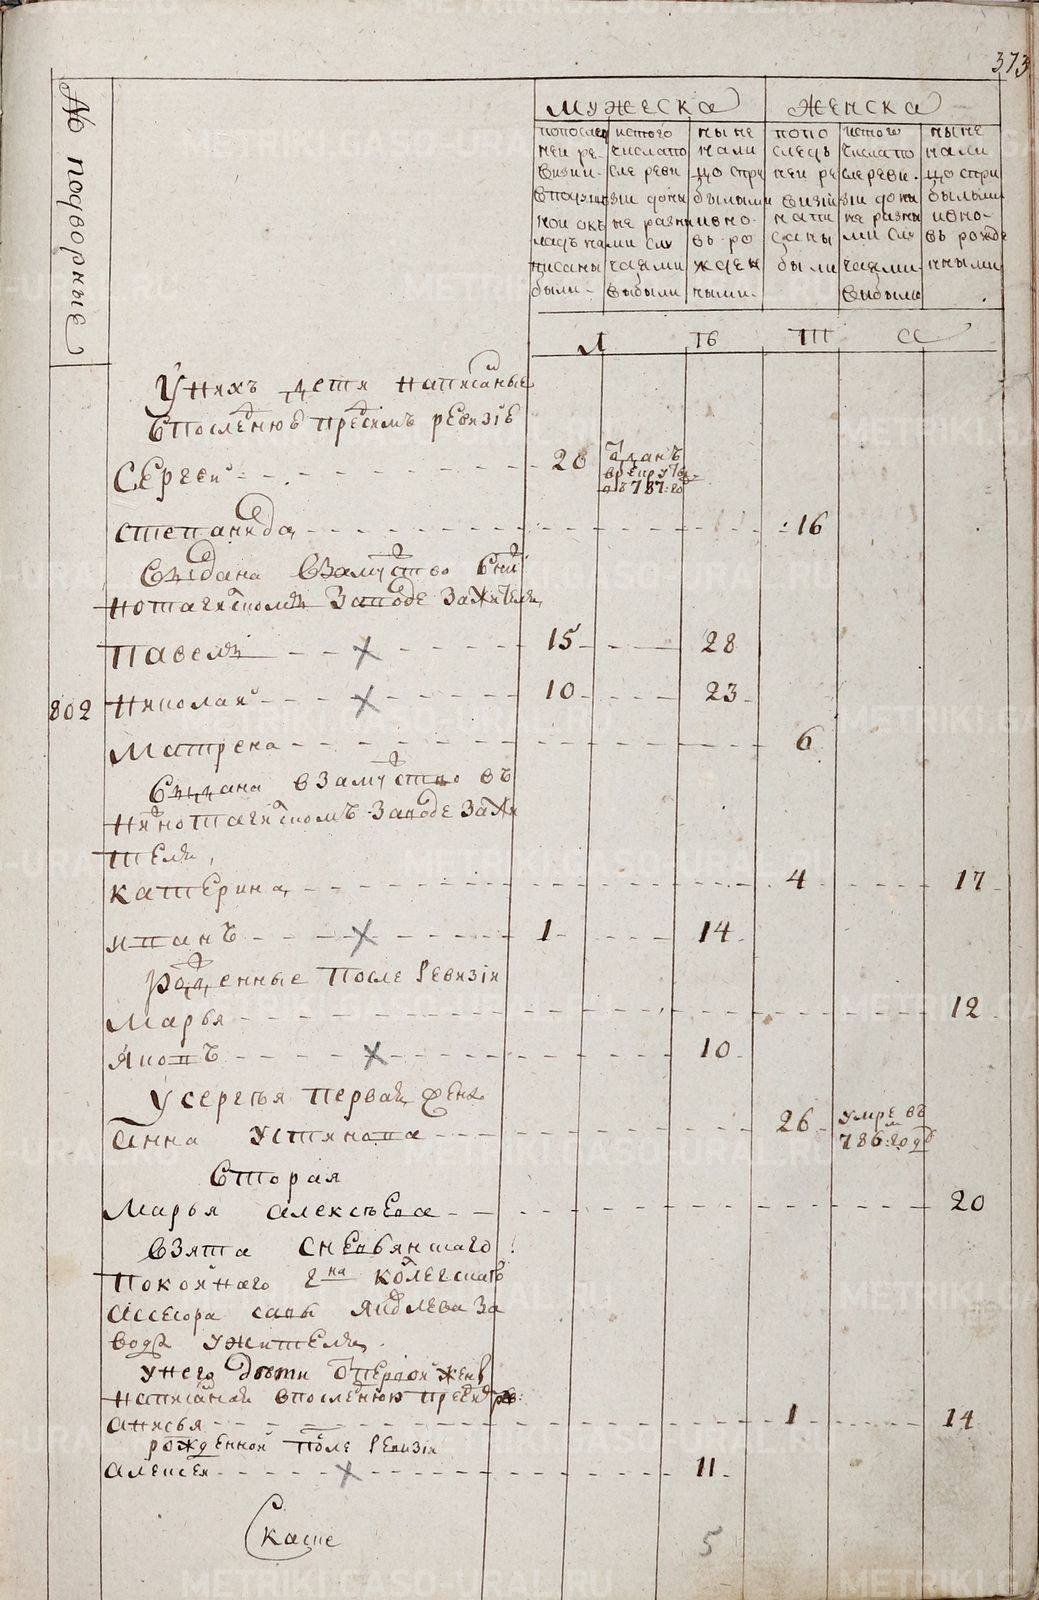 373
№ подворные
мужеска
женска
попослед
ней ре-
визии
вподуш
ной окъ
ладъ на
писаны
были-
истого
числапо
сле реви
зии доны
не разны
ми слу
чаями
выбыли
ныне
нали
цо спри
былыми
ивно-
въ ро
жден
ными-
попо
следъ
ней ре
визии
напи
саны
были
истого
числапо
слереви-
зии доны
не разны
ми слу
чаями
выбыли
ныне
нали
цо спри
былыми
ивно-
въ рожде
нными
Л
Т6
ТП
сс
Унихъ дети написаные
впоследнюю пресимъ ревизiю
Сергей
20
взданъ
врекруты
въ787:го
степанида
16
выдана взамужство вни
нотагилскомъ заводе зажителя
Павелъ
15
28
802
Николай
10
23
Матрена
6
выдана взамужство въ
нижнотагилскомъ заводе зажи
теля,
катерина
4
17
иванъ
1
14
Рожденные после ревизiи
Марья
12
яковъ
10
у сергея первая жена
Анна устинова
26
умре въ
786:году
вторая
Марья алексѣева
20
взята сневьянскаго
покойнаго гна колегскаго
ассесора савы яковлева за
вода ужителя
унего дѣти отпервой жены
написаной впоследнюю пресимъ рев:
анисья
1
14
рожденной после ревизiи
Алексей
11
Скаше
5